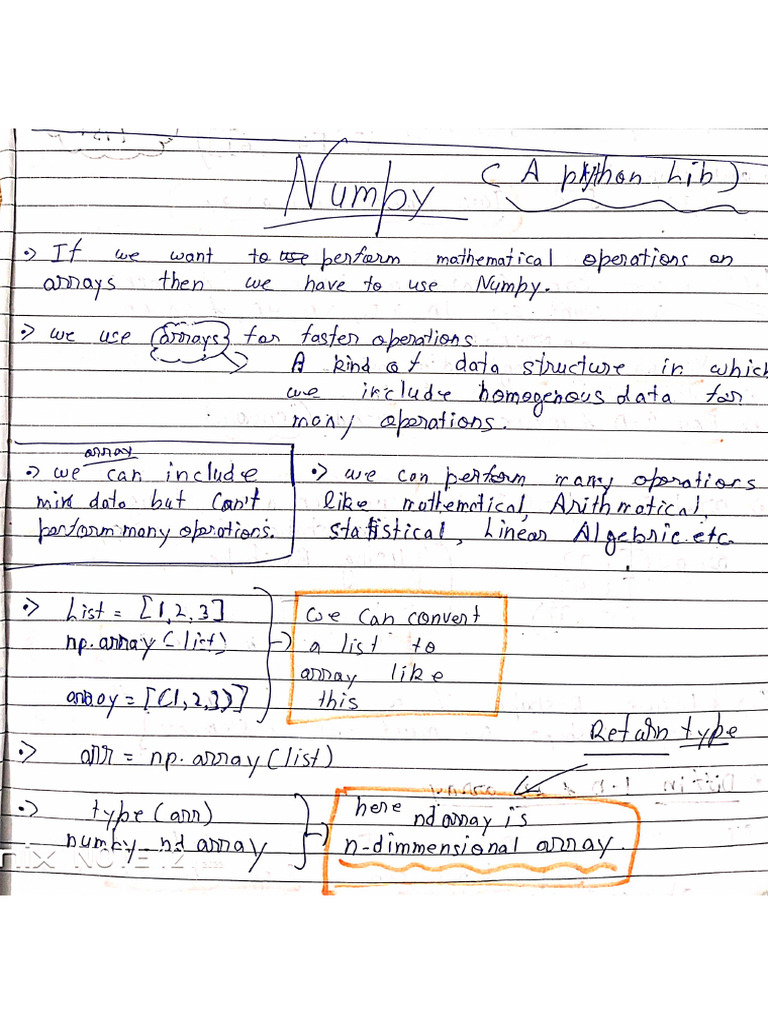 Numpy (A python Lib)
:) If we want to use perform mathematical operations on
arrays then we have to use Numpy.
:) we use arrays for faster operations
A kind of data structure in which
we include homogenous data for
many operations.
array
:) we can include
mix data but can't
perform many operations.
:) we can perform many operations
like mathematical, Arithmatical,
statistical, Linear Algebric etc.
:) List = [1,2,3]
np.array(list)
array = [(1,2,3)]
we can convert
a list to
array like
this
:) arr = np.array(list)
Return type
:) type(arr)
numpy nd array
here
nd array is
n-dimmensional array.